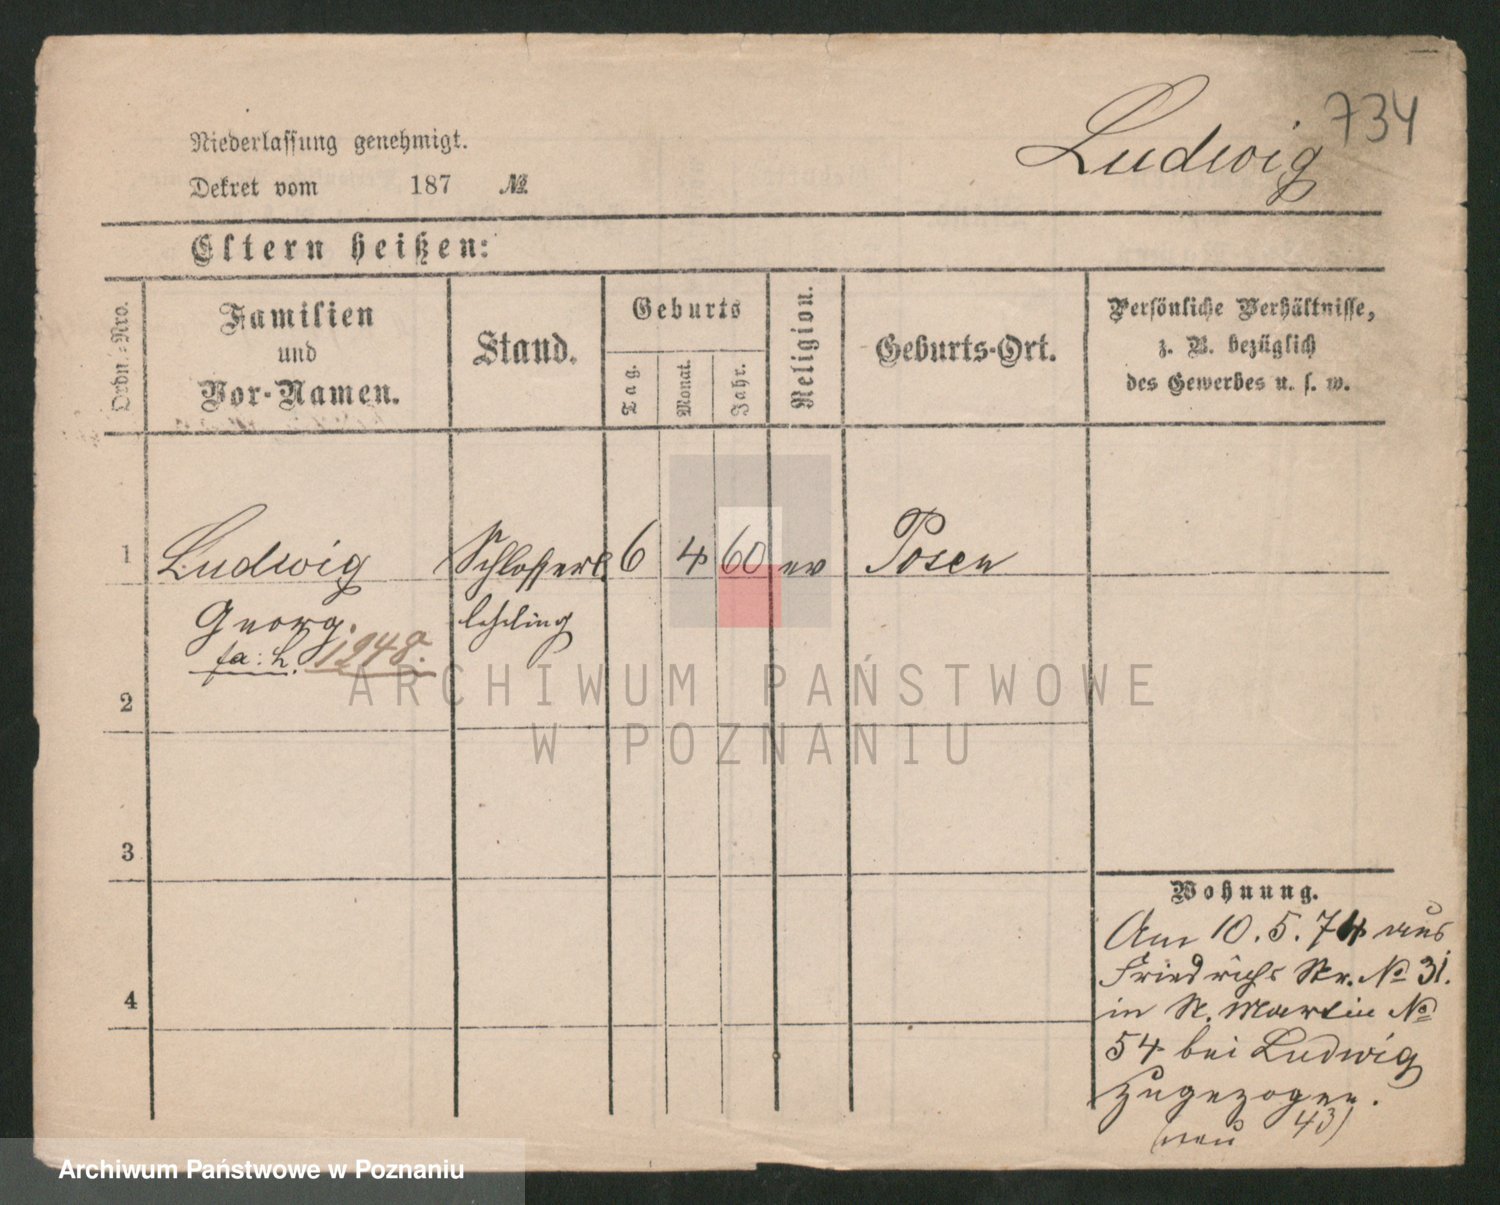 734
Ludwig
Niederlassung genehmigt.
Dekret vom 187 №
Eltern heißen:
Ordn.-Nro.
Familien
und
Vor-Namen.
Stand.
Geburts
Tag.
Monat.
Jahr.
Religion.
Geburts-Ort.
Persönliche Verhältnisse,
z. B. bezüglich
des Gewerbes u. s. w.
1 Ludwig Schlosser 6 4 60 ev Posen
Georg. lehrling
fa: h. 1248.
2
3
4
Wohnung.
Am 10. 5. 74 aus
Friedrichs Str. № 31.
in St. Martin №
54 bei Ludwig
zugezogen.
(neu 43)
ARCHIWUM PAŃSTWOWE
W POZNANIU
Archiwum Państwowe w Poznaniu